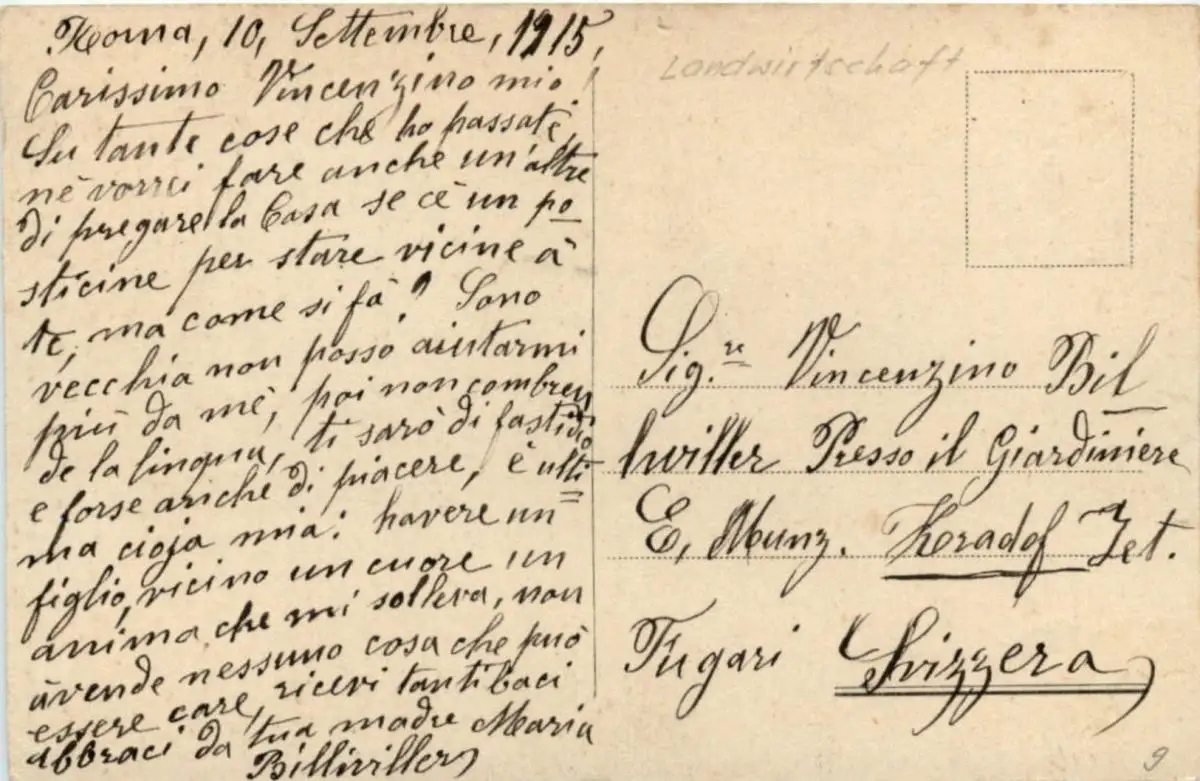 Roma, 10, Settembre, 1915,
Carissimo Vincenzino mio!
Su tante cose che ho passate,
nè vorrei fare anche un'altre
di pregare la Casa se cè un po
sticine per stare vicine à
te, ma come si fà? Sono
vecchia non posso aiutarmi
più da mè, poi non combren
de la lingua, ti sarò di fastidio
e forse anche di piacere, è ulti
ma cioja mia: havere un
figlio, vicino un cuore un
anima che mi solleva, non
àvende nessuno cosa che può
essere care, ricevi tanti baci
abbraci da tua madre Maria
Billiviller
Landwirtschaft
Sig.re Vincenzino Bil
lwiller Presso il Giardiniere
E, Munz. Zet.
Svizzera
9